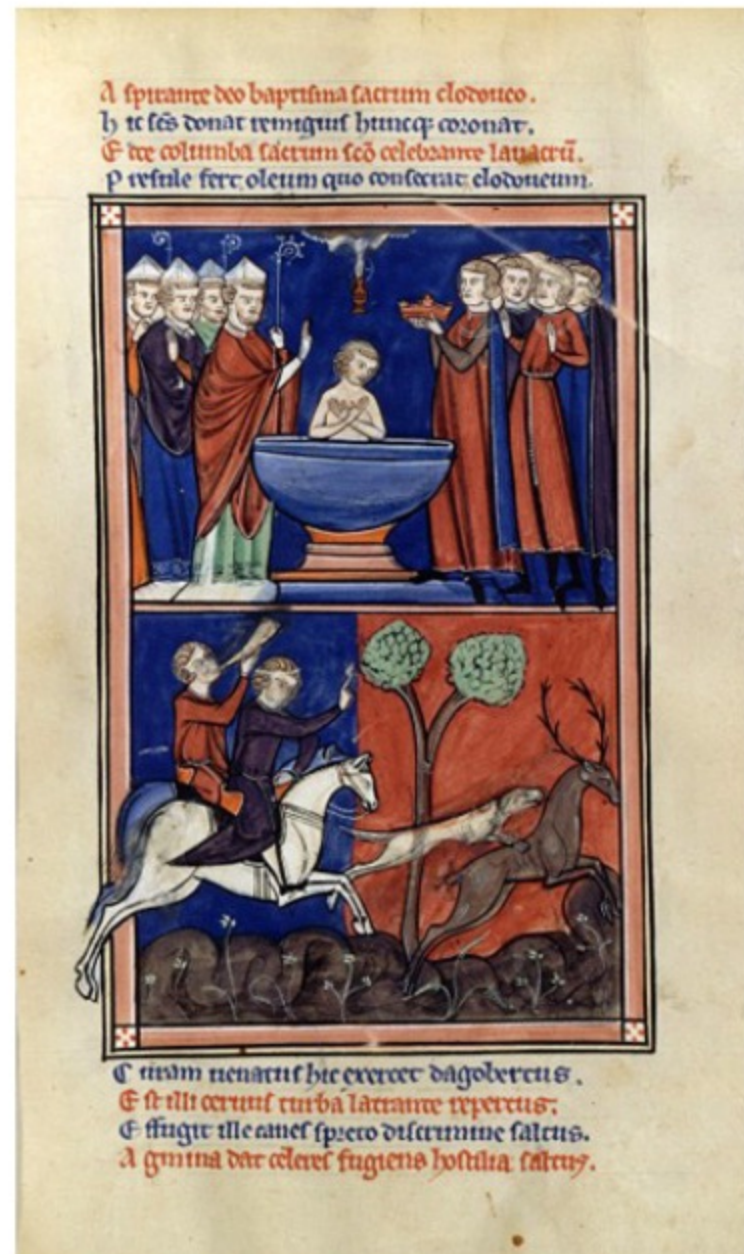 A spirante deo baptisma sacrum clodoueo.
h ic scs donat remigius huncq; coronat.
E cce columba sacrum scō celebrante lauacrū.
P resule fert oleum quo consecrat clodoueum.
C uram uenatus hic exercet dagobertus.
E st illi ceruus turba latrante repertus.
E ffugit ille canes spreto discrimine saltus.
A gmina dat celeres fugiens hostilia saltus.